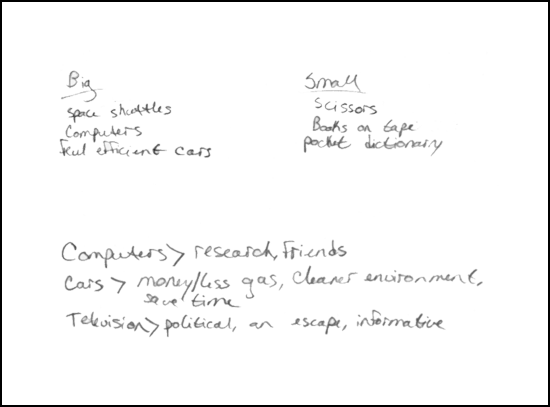 Big
space shuttles
Computers
feul efficient cars
Small
Scissors
Books on tape
pocket dictionary
Computers > research, friends
Cars > money/less gas, cleaner environment,
save time
Television > political, an escape, informative